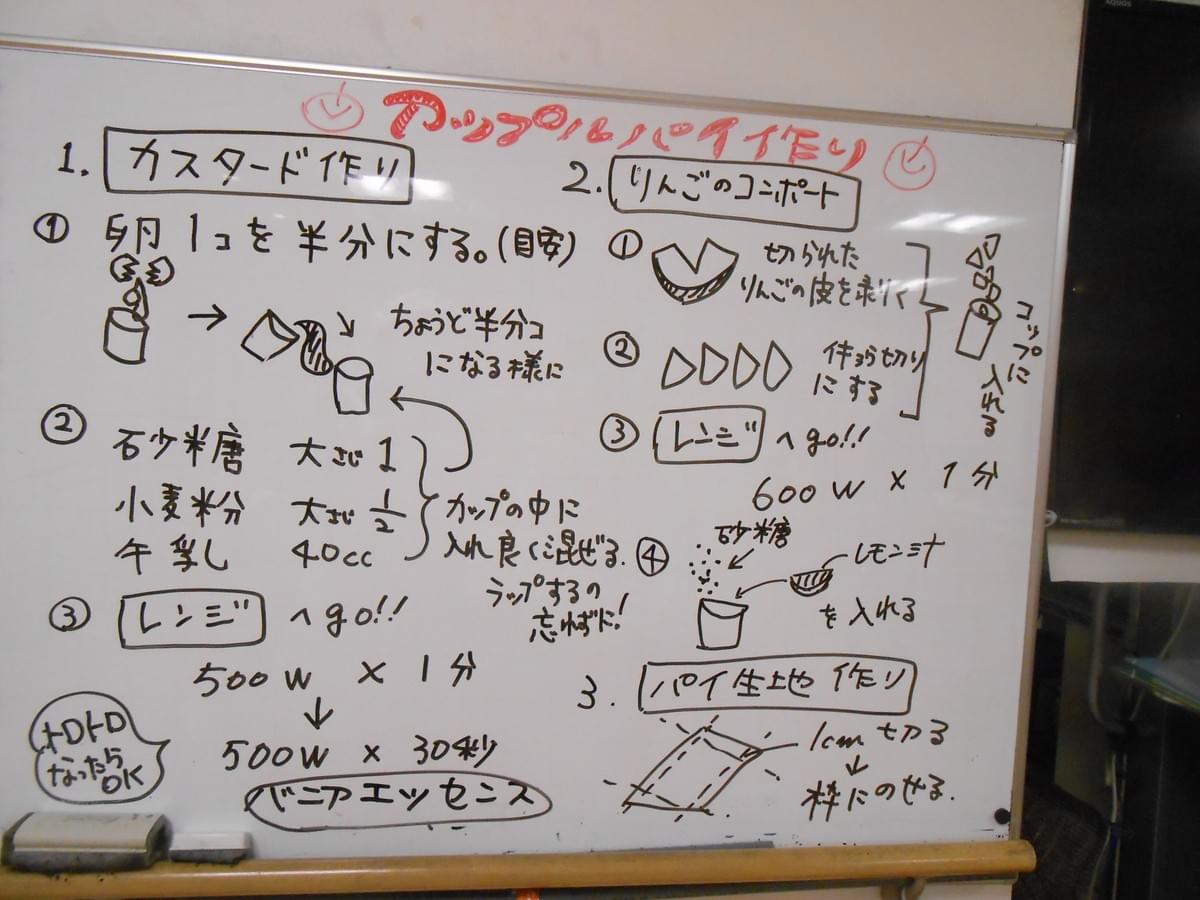 アップルパイ作り
1. カスタード作り
① 卵1コを半分にする。(目安)
ちょうど半分コ
になる様に
② 砂糖 大さじ 1
小麦粉分 大さじ 1/2
牛乳し 40cc
カップの中に
入れ良く混ぜる.
ラップするの
忘れずに!
③ レンジ へgo!!
500W × 1分
↓
500W × 30秒
バニアエッセンス
トロトロ
なったら
OK
2. りんごのコンポート
① 切られた
りんごの皮を剥く
② 件ょう切り
にする
コップに
入れる
③ レンジ へgo!!
600W × 1分
④ 砂糖
レモン汁
を入れる
3. パイ生地作り
1cm 切る
↓
枠にのせる.